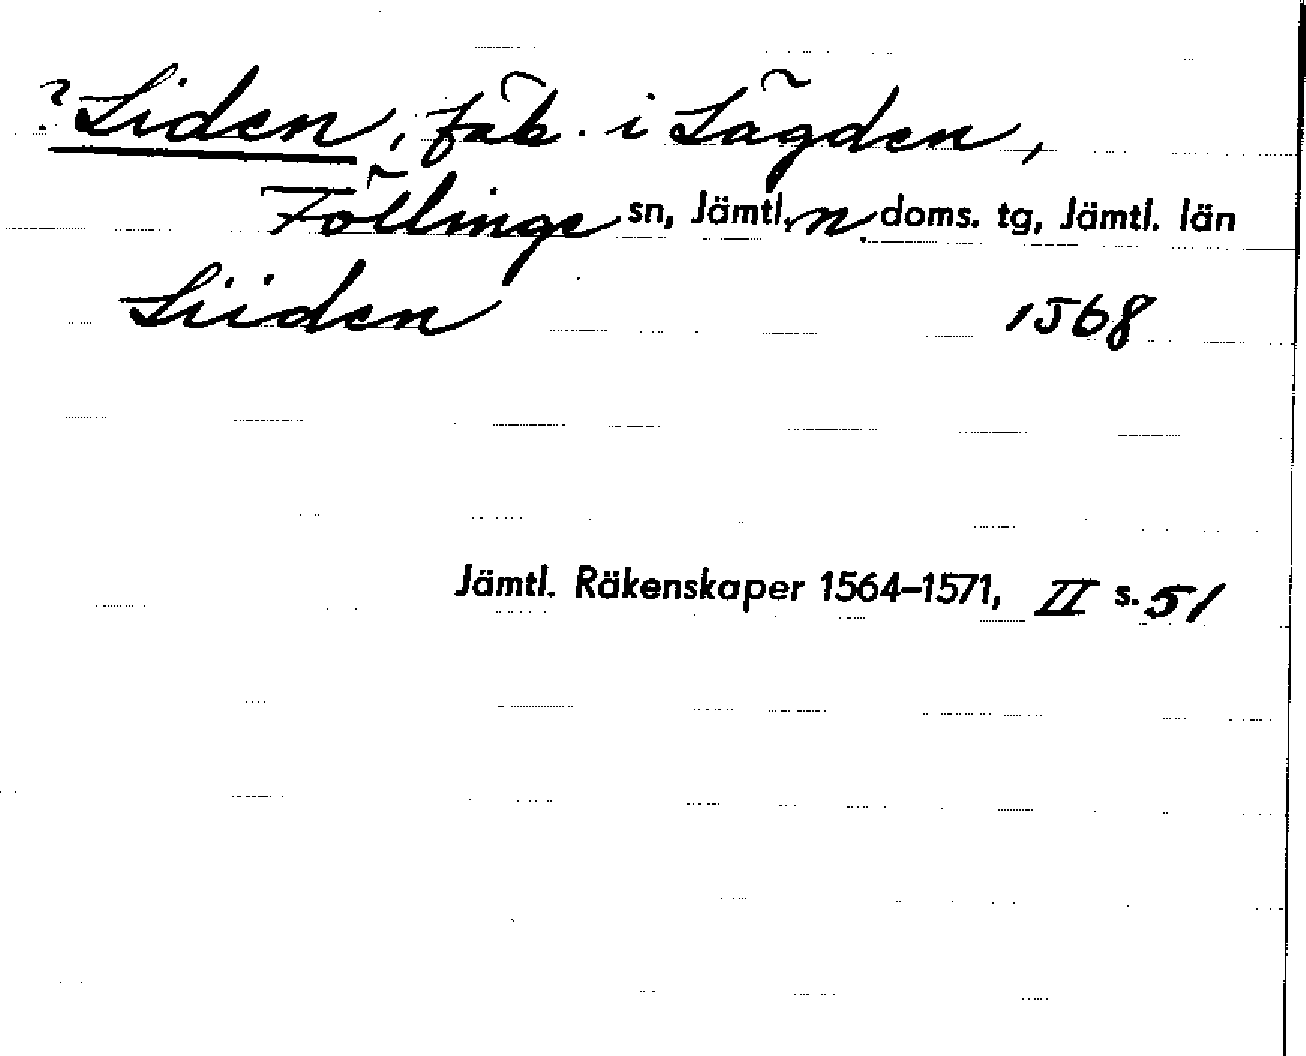 ? Liden, fäb. i Lägden,
Föllinge sn, Jämtl. n. doms. tg, Jämtl. län
Liiden 1568
Jämtl. Räkenskaper 1564–1571, II s. 51